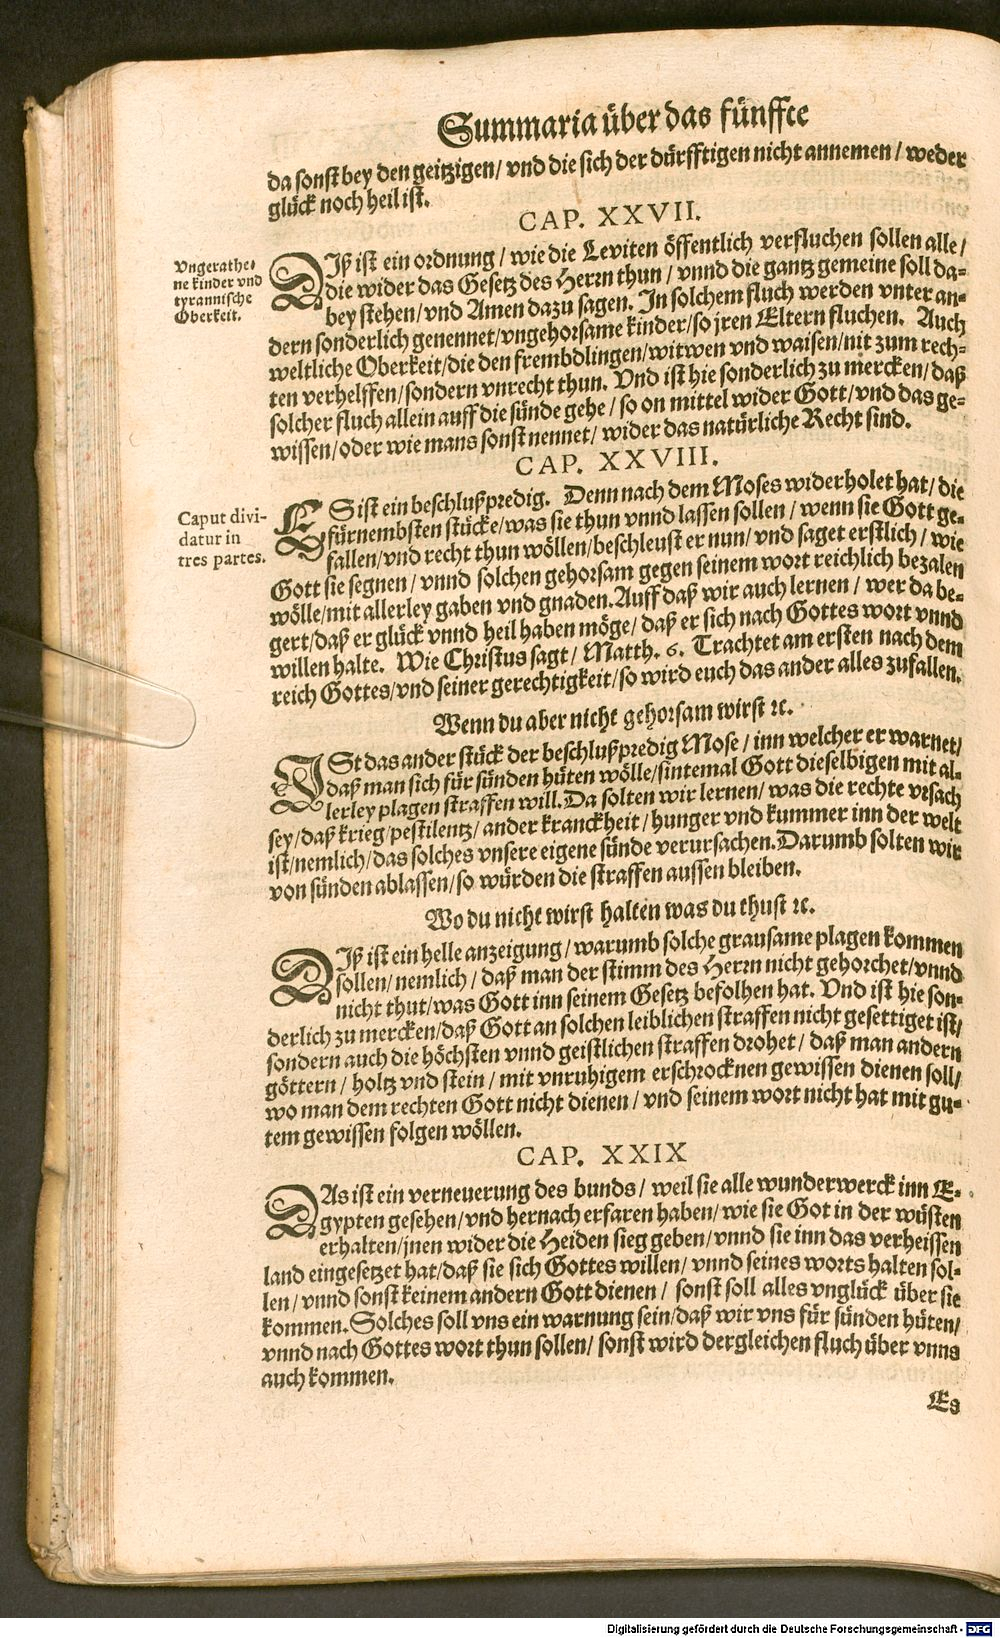 Summaria über das fünffte
da sonst bey den geitzigen/ vnd die sich der dürfftigen nicht annemen/ weder
glück noch heil ist.
CAP. XXVII.
Vngerathe-
ne kinder vnd
tyrannische
Oberkeit.
DIß ist ein ordnung/ wie die Leviten öffentlich verfluchen sollen alle/
die wider das Gesetz des Herrn thun/ vnnd die gantz gemeine soll da-
bey stehen/ vnd Amen dazu sagen. In solchem fluch werden vnter an-
dern sonderlich genennet/ vngehorsame kinder/ so jren Eltern fluchen. Auch
weltliche Oberkeit/ die den frembdlingen/ witwen vnd waisen/ nit zum rech-
ten verhelffen/ sondern vnrecht thun. Vnd ist hie sonderlich zu mercken/ daß
solcher fluch allein auff die sünde gehe/ so on mittel wider Gott/ vnd das ge-
wissen/ oder wie mans sonst nennet/ wider das natürliche Recht sind.
CAP. XXVIII.
Caput divi-
datur in
tres partes.
ES ist ein beschlußpredig. Denn nach dem Moses widerholet hat/ die
fürnembsten stücke/ was sie thun vnnd lassen sollen/ wenn sie Gott ge-
fallen/ vnd recht thun wöllen/ beschleust er nun/ vnd saget erstlich/ wie
Gott sie segnen/ vnnd solchen gehorsam gegen seinem wort reichlich bezalen
wölle/ mit allerley gaben vnd gnaden. Auff daß wir auch lernen/ wer da be-
gert/ daß er glück vnnd heil haben möge/ daß er sich nach Gottes wort vnnd
willen halte. Wie Christus sagt/ Matth. 6. Trachtet am ersten nach dem
reich Gottes/ vnd seiner gerechtigkeit/ so wird euch das ander alles zufallen.
Wenn du aber nicht gehorsam wirst ꝛc.
ISt das ander stück der beschlußpredig Mose/ inn welcher er warnet/
daß man sich für sünden hüten wölle/ sintemal Gott dieselbigen mit al-
lerley plagen straffen will. Da solten wir lernen/ was die rechte vrsach
sey/ daß krieg/ pestilentz/ ander kranckheit/ hunger vnd kummer inn der welt
ist/ nemlich/ das solches vnsere eigene sünde verursachen. Darumb solten wir
von sünden ablassen/ so würden die straffen aussen bleiben.
Wo du nicht wirst halten was du thust ꝛc.
DIß ist ein helle anzeigung/ warumb solche grausame plagen kommen
sollen/ nemlich/ daß man der stimm des Herrn nicht gehorchet/ vnnd
nicht thut/ was Gott inn seinem Gesetz befolhen hat. Vnd ist hie son-
derlich zu mercken/ daß Gott an solchen leiblichen straffen nicht gesettiget ist/
sondern auch die höchsten vnnd geistlichen straffen drohet/ daß man andern
göttern/ holtz vnd stein/ mit vnruhigem erschrocknen gewissen dienen soll/
wo man dem rechten Gott nicht dienen/ vnd seinem wort nicht hat mit gu-
tem gewissen folgen wöllen.
CAP. XXIX
DAs ist ein verneuerung des bunds/ weil sie alle wunderwerck inn E-
gypten gesehen/ vnd hernach erfaren haben/ wie sie Got in der wüsten
erhalten/ jnen wider die Heiden sieg geben/ vnnd sie inn das verheissen
land eingesetzet hat/ daß sie sich Gottes willen/ vnnd seines worts halten sol-
len/ vnnd sonst keinem andern Gott dienen/ sonst soll alles vnglück über sie
kommen. Solches soll vns ein warnung sein/ daß wir vns für sünden hüten/
vnnd nach Gottes wort thun sollen/ sonst wird dergleichen fluch über vnns
auch kommen.
Es
Digitalisierung gefördert durch die Deutsche Forschungsgemeinschaft - DFG